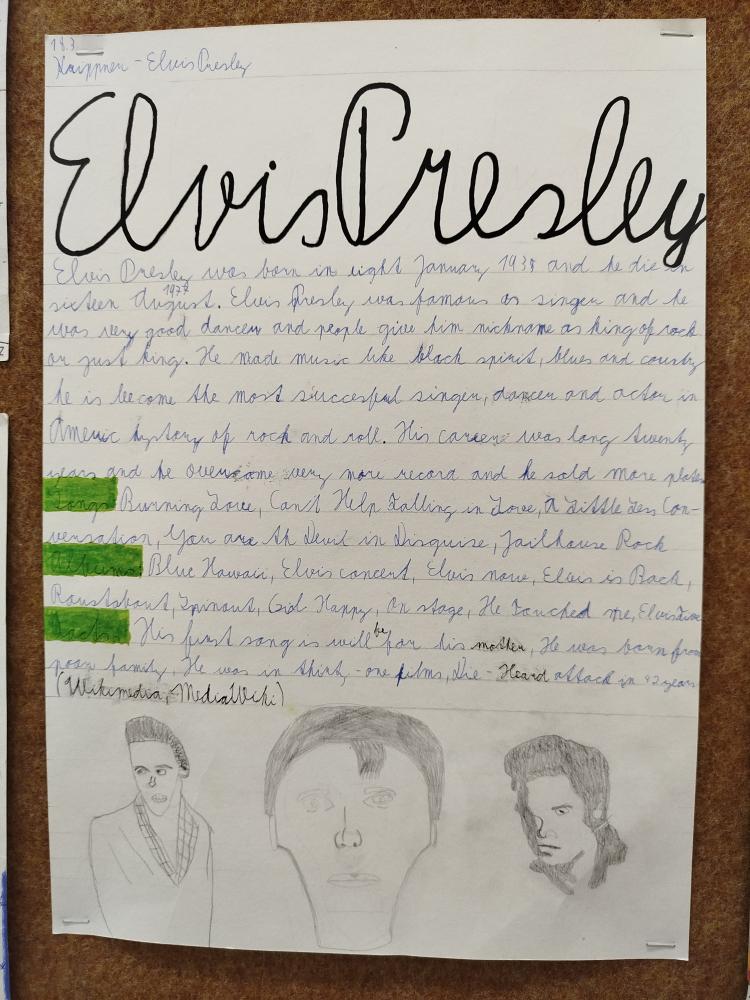 18.3
Knippner - Elvis Presley
Elvis Presley
Elvis Presley was born in eight January 1935 and he die in
sixteen August 1977. Elvis Presley was famous as singer and he
was very good dancer and people give him nickname as king of rock
or just king. He made music like black spirit, blues and country
he is become the most succesful singer, dancer and actor in
Americ hystory of rock and roll. His career was long twenty
years and he overcome very more record and he sold more plates
Songs Burning Love, Can't Help Falling in Love, A Little Less Con-
versation, You are th Devil in Disguise, Jailhouse Rock
Albums Blue Hawaii, Elvis concert, Elvis now, Elvis is Back,
Roustabout, Spinout, Girl Happy, On stage, He Touched me, Elvis
Facts His first song is will be for his mother, He was born from
poor family, He was in thirt, -one films, Die - Heard attack in 42 years
(Wikimedia, MediaWiki)